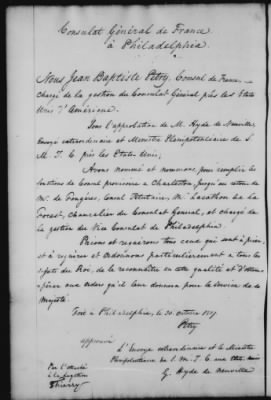 Consulat Général de France
à Philadelphia
Nous Jean Baptiste Petry, Consul de France
chargé de la gestion du Consulat Général près les Etats
Unis d'Amérique
Sous l'approbation de M. Hyde de Neuville,
Envoyé extraordinaire et Ministre Plenipotentiaire de S.
M. T. C. près les Etats Unis,
Avons nommé et nommons pour remplir les
fonctions de Consul provisoire a Charleston, jusqu'au retour
de Mr. de Fougères, Consul Titulaire, Mr. de la
Forest, chancelier du Consulat Général, et chargé de
la gestion du Vice Consulat de Philadelphia.
Prions et requerons tous ceux qui sont à prier,
et à requérir et Ordonnons particulierement a tous les
sujets du Roi, de le reconnoître en cette qualité et d'obtem-
pérer aux ordres qu'il leur donnera pour le service de sa
Majesté.
Fait à Philadelphia, le 30. octobre
Petry
approuvé
L'Envoyé extraordinaire et le Ministre
Plenipotentiaire de S. M. T. C. aux etats unis
G. Hyde de Neuville
Thierry